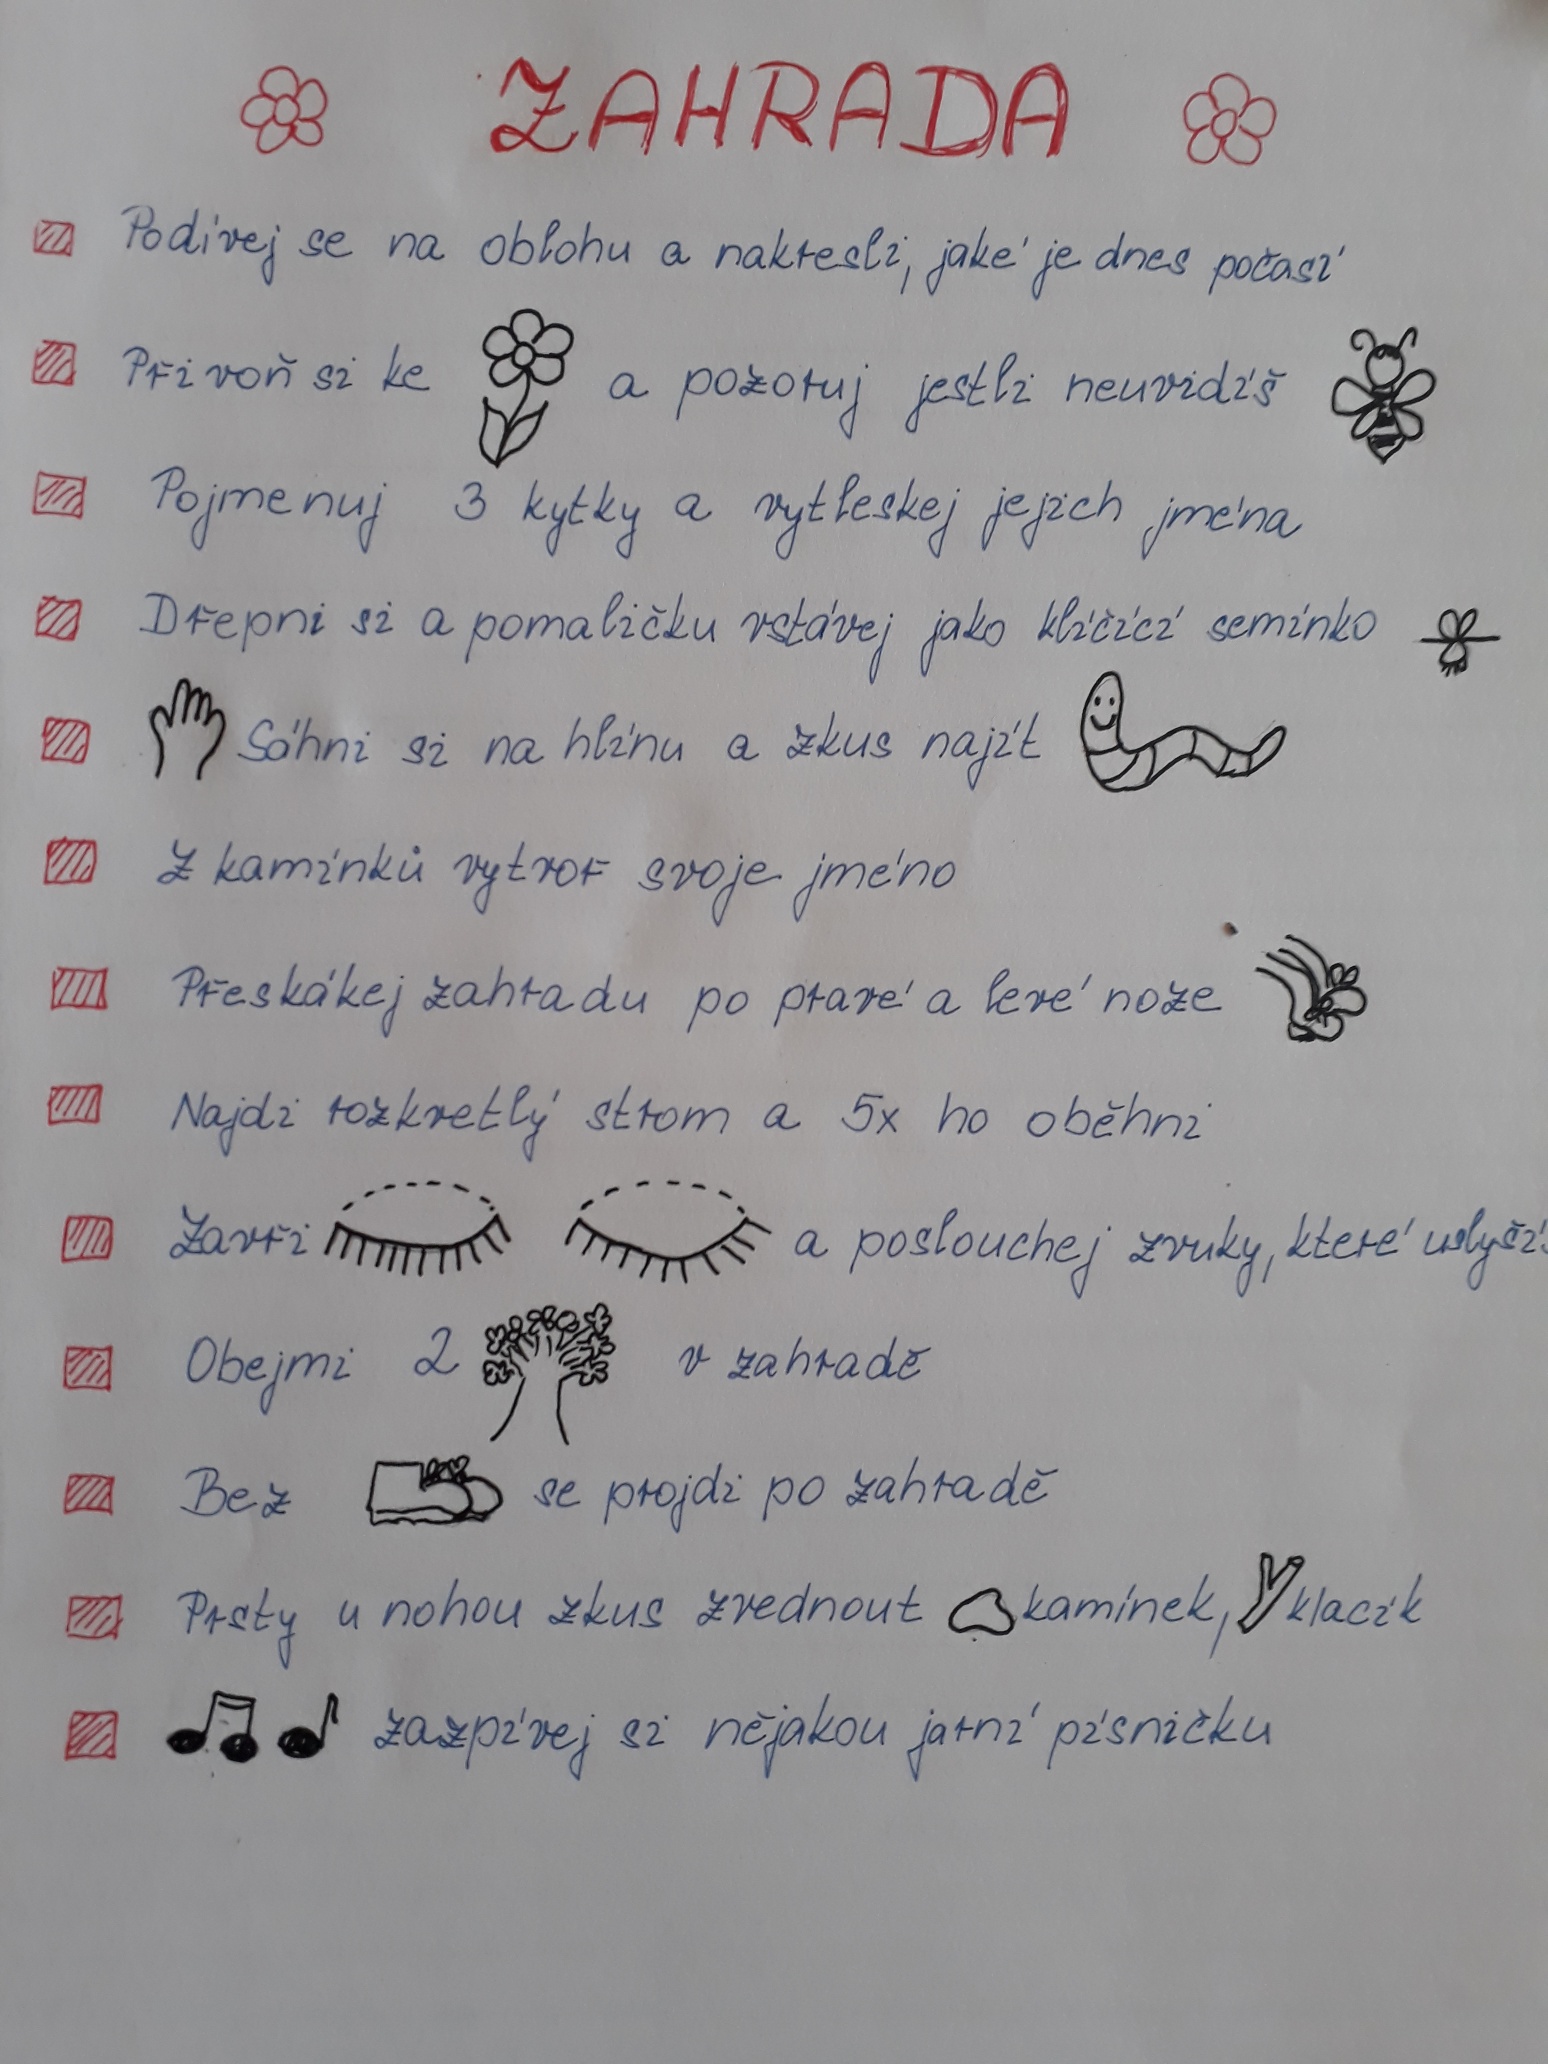 ZAHRADA
Podívej se na oblohu a nakresli, jaké je dnes počasí
Přivoň si ke a pozoruj jestli neuvidíš
Pojmenuj 3 kytky a vytleskej jejich jména
Dřepni si a pomaličku vstávej jako klíčící semínko
Sáhni si na hlínu a zkus najít
Z kamínků vytvoř svoje jméno
Přeskákej zahradu po pravé a levé noze
Najdi rozkvetlý strom a 5x ho oběhni
Zavři a poslouchej zvuky, které uslyšíš
Obejmi 2 v zahradě
Bez se projdi po zahradě
Prsty u nohou zkus zvednout kamínek, klacík
zazpívej si nějakou jarní písničku